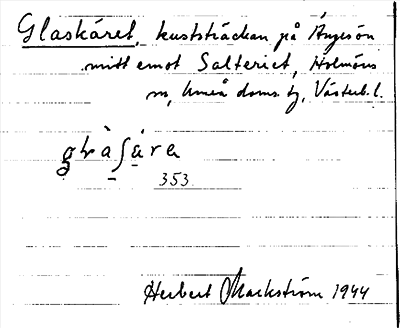 Glaskäret, kuststräckan på Ängesön
mitt emot Salteriet, Holmöns
sn, Umeå doms. tj, Västerb. l.
353
Herbert Markström 1944